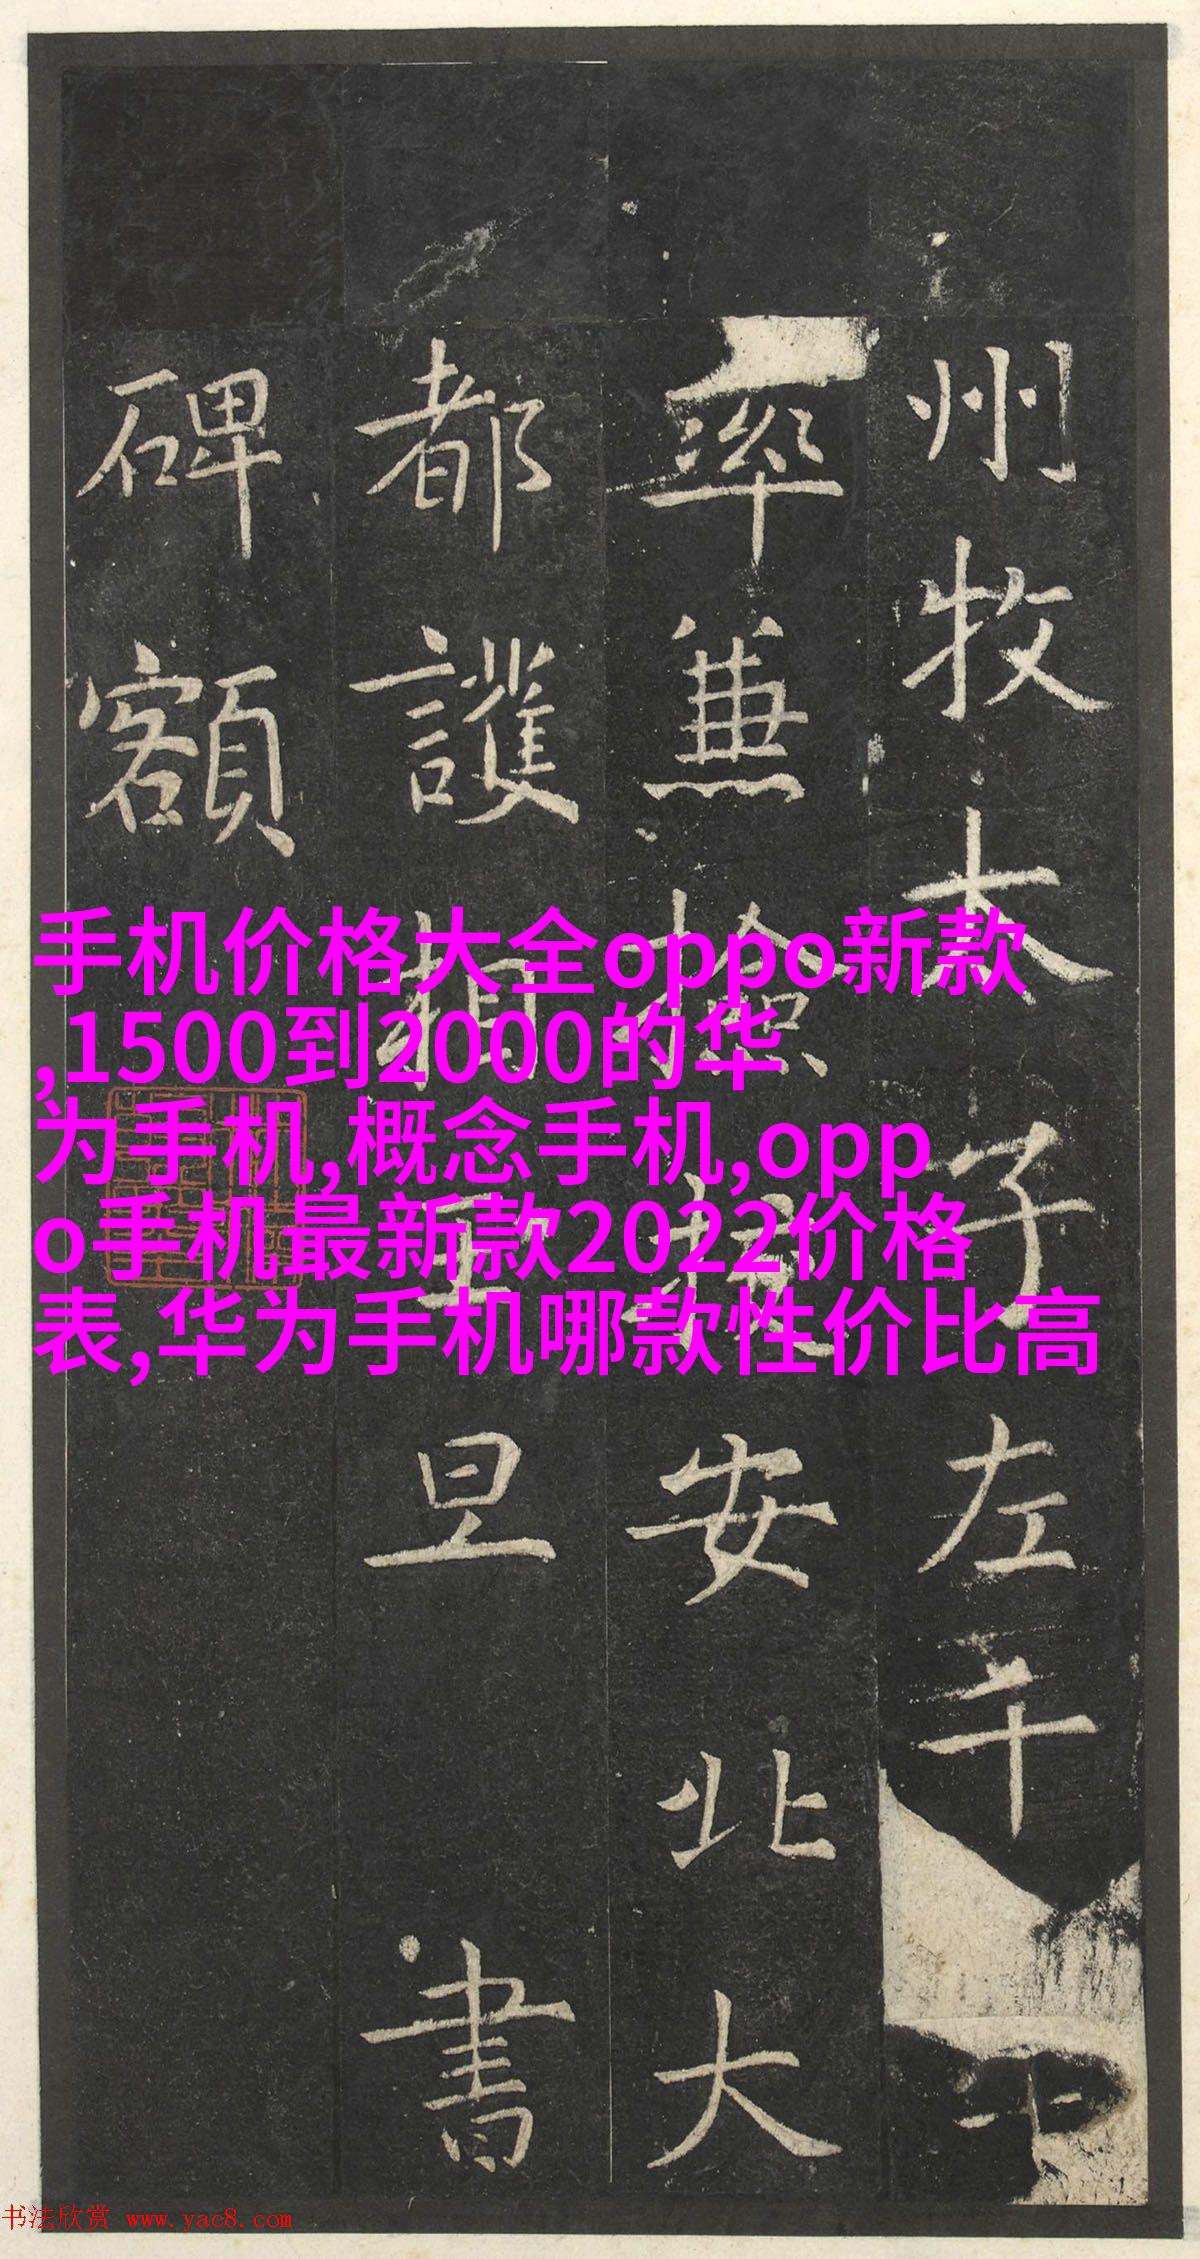 州牧太子左千
率兼撿挍安北大
都護相王旦書
碑額
手机价格大全oppo新款
,1500到2000的华
为手机,概念手机,opp
o手机最新款2022价格
表,华为手机哪款性价比高
书法欣赏 www.yac8.com